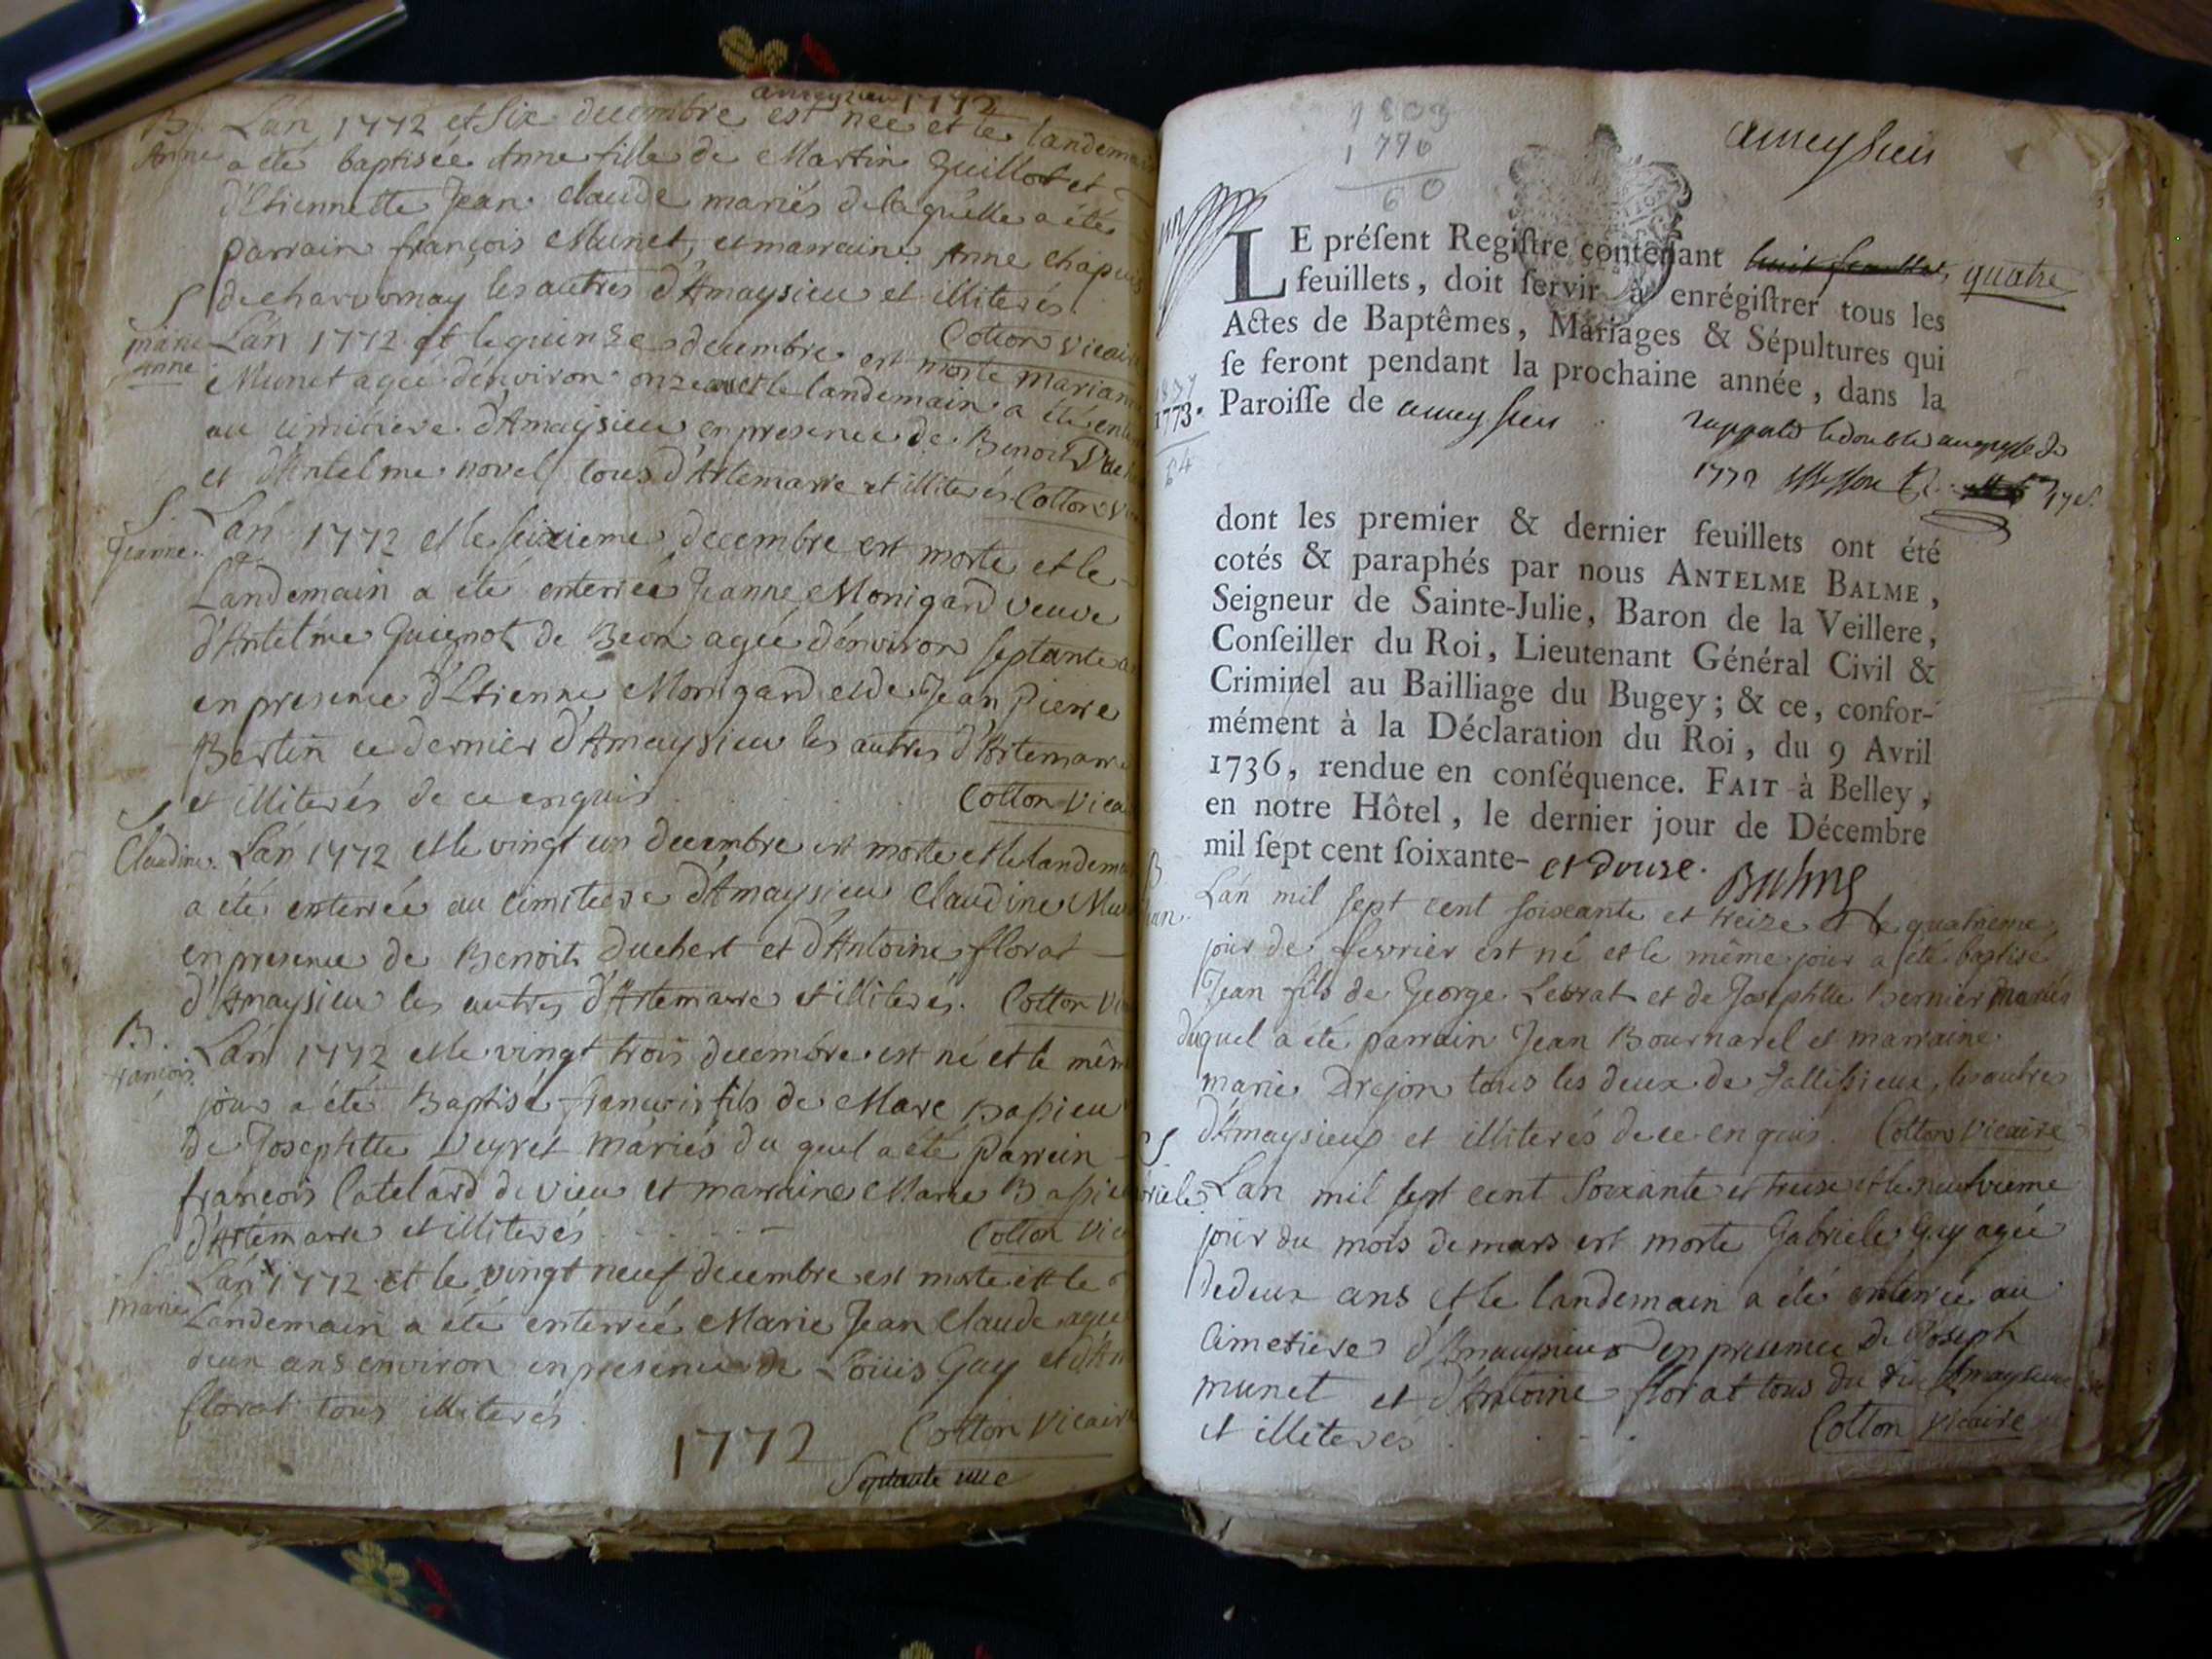 ameyzieu 1772
B. L'an 1772 et six decembre est neé et le landemain
Anne a été baptisée Anne fille de Martin Guillot et
d'Etiennette Jean Claude mariés de laquelle a été
parrain françois Munet, et marraine Anne Chapuis
de charvornay les autres d'Amaysieu et illiterés.
Cotton Vicaire
S
marie anne L'an 1772 et le quinze decembre est morte mariane
Munet agée d'environ onze et le landemain a été
au cimitiere d'Amaysieu en presence de Benoit
et d'Antelme novel tous d'Artemarre et illiterés Cotton
S.
Jeanne. L'an 1772 et le seixieme decembre est morte et le
Landemain a été enterrée Jeanne Monigard veuve
d'Antelme Guignot de Beon agée d'environ septante
en presence d'Etienne Monigard et de Jean Pierre
Bertin ce dernier d'Amaysieu les autres d'Artemarre
et illiterés de ce enquis Cotton Vica
S
Claudine. L'an 1772 et le vingt un decembre est morte et le landem
a été enterrée au cimitiere d'Amaysieu Claudine Mu
en presence de Benoit Duchert et d'Antoine florat
d'Amaysieu les autres d'Artemarre et illiterés. Cotton Vi
B.
francois L'an 1772 et le vingt trois decembre est né et le mêm
jour a été Baptisé francois fils de Marc Bassieu
de Josephtte Veyret mariés du quel a été parrein
francois Catelard de vieu et marraine Marie Bassieu
d'Artemarre et illiterés Cotton Vic
S.
marie L'an 1772 et le vingt neuf decembre est morte et le
Landemain a été enterrée Marie Jean Claude agée
deux ans environ en presence de Loüis Gay et d'An
florat tous illiterés.
Cotton Vicaire
1772
Septante une
1809
1770
60
ameysieu
LE préſent Regiſtre contenant huit feuillets, quatre
feuillets, doit ſervir à enrégiſtrer tous les
Actes de Baptêmes, Mariages & Sépultures qui
ſe feront pendant la prochaine année, dans la
1773. Paroiſſe de ameysieu
64
1772
dont les premier & dernier feuillets ont été
cotés & paraphés par nous ANTELME BALME,
Seigneur de Sainte-Julie, Baron de la Veillere,
Conſeiller du Roi, Lieutenant Général Civil &
Criminel au Bailliage du Bugey; & ce, confor-
mément à la Déclaration du Roi, du 9 Avril
1736, rendue en conſéquence. FAIT à Belley,
en notre Hôtel, le dernier jour de Décembre
mil ſept cent ſoixante- et douze. Balme
B
L'an mil sept cent soixante et treize et le quatrieme
jour de fevrier est né et le même jour a été baptisé
Jean fils de George Levrat et de Josephtte Bernier mariés
duquel a été parrain Jean Bournarel et marraine
marie Drejon tous les deux de Tallissieu, les autres
d'Amaysieu et illiterés de ce enquis. Cotton Vicaire
S
L'an mil sept cent soixante et treize et le neufvieme
jour du mois de mars est morte Gabriele Gay agée
de deux ans et le landemain a été enterrée au
Cimetiere d'Amaysieu en presence de Joseph
munet et d'Antoine florat tous du dit Amaysieu
et illiterés
Cotton Vicaire